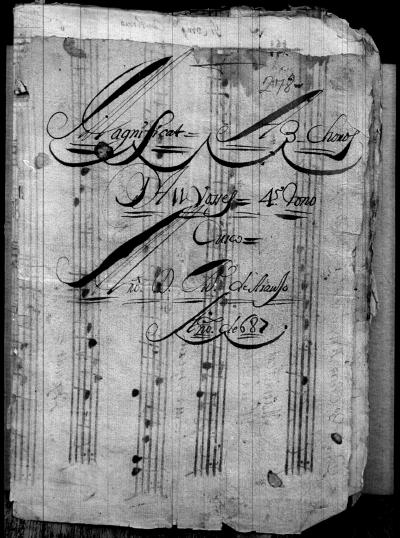 278
Magnificat = A 3 Choros
A 11 Voyes = 4.º tono
Cuico =
de Araujo
Año. de 687.